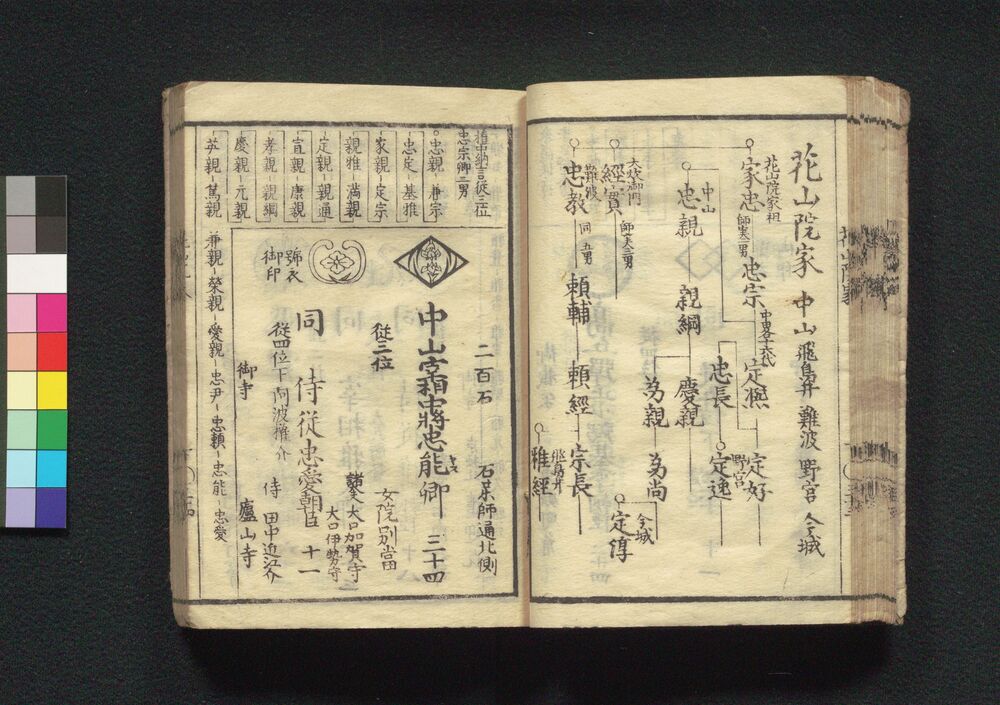 花山院家 中山 飛鳥井 難波 野宮 今城
花山院家祖
家忠 師実二男 忠宗 中畧十六代 定煕 定好
忠長 野宮 定逸
中山
忠親 親綱 慶親
為親 為尚 今城 定淳
大炊御門
經實 師実三男
難波
忠教 同五男 頼輔 頼經 宗長
飛鳥井
雅經
権中納言従三位
忠宗卿二男
忠親 兼宗
忠定 基雅
家親 定宗
親雅 満親
定親 親通
宣親 康親
孝親 親綱
慶親 元親
英親 篤親
兼親 榮親 愛親 忠尹 忠頼 忠能 忠愛
二百石 石薬師通北側
中山宰相中將忠能卿 三十四
従三位 女院別當
雜掌 大口加賀守
大口伊勢守
同 侍従忠愛朝臣 十一
従四位下阿波権介
侍 田中近江介
號衣
御印
御寺 廬山寺